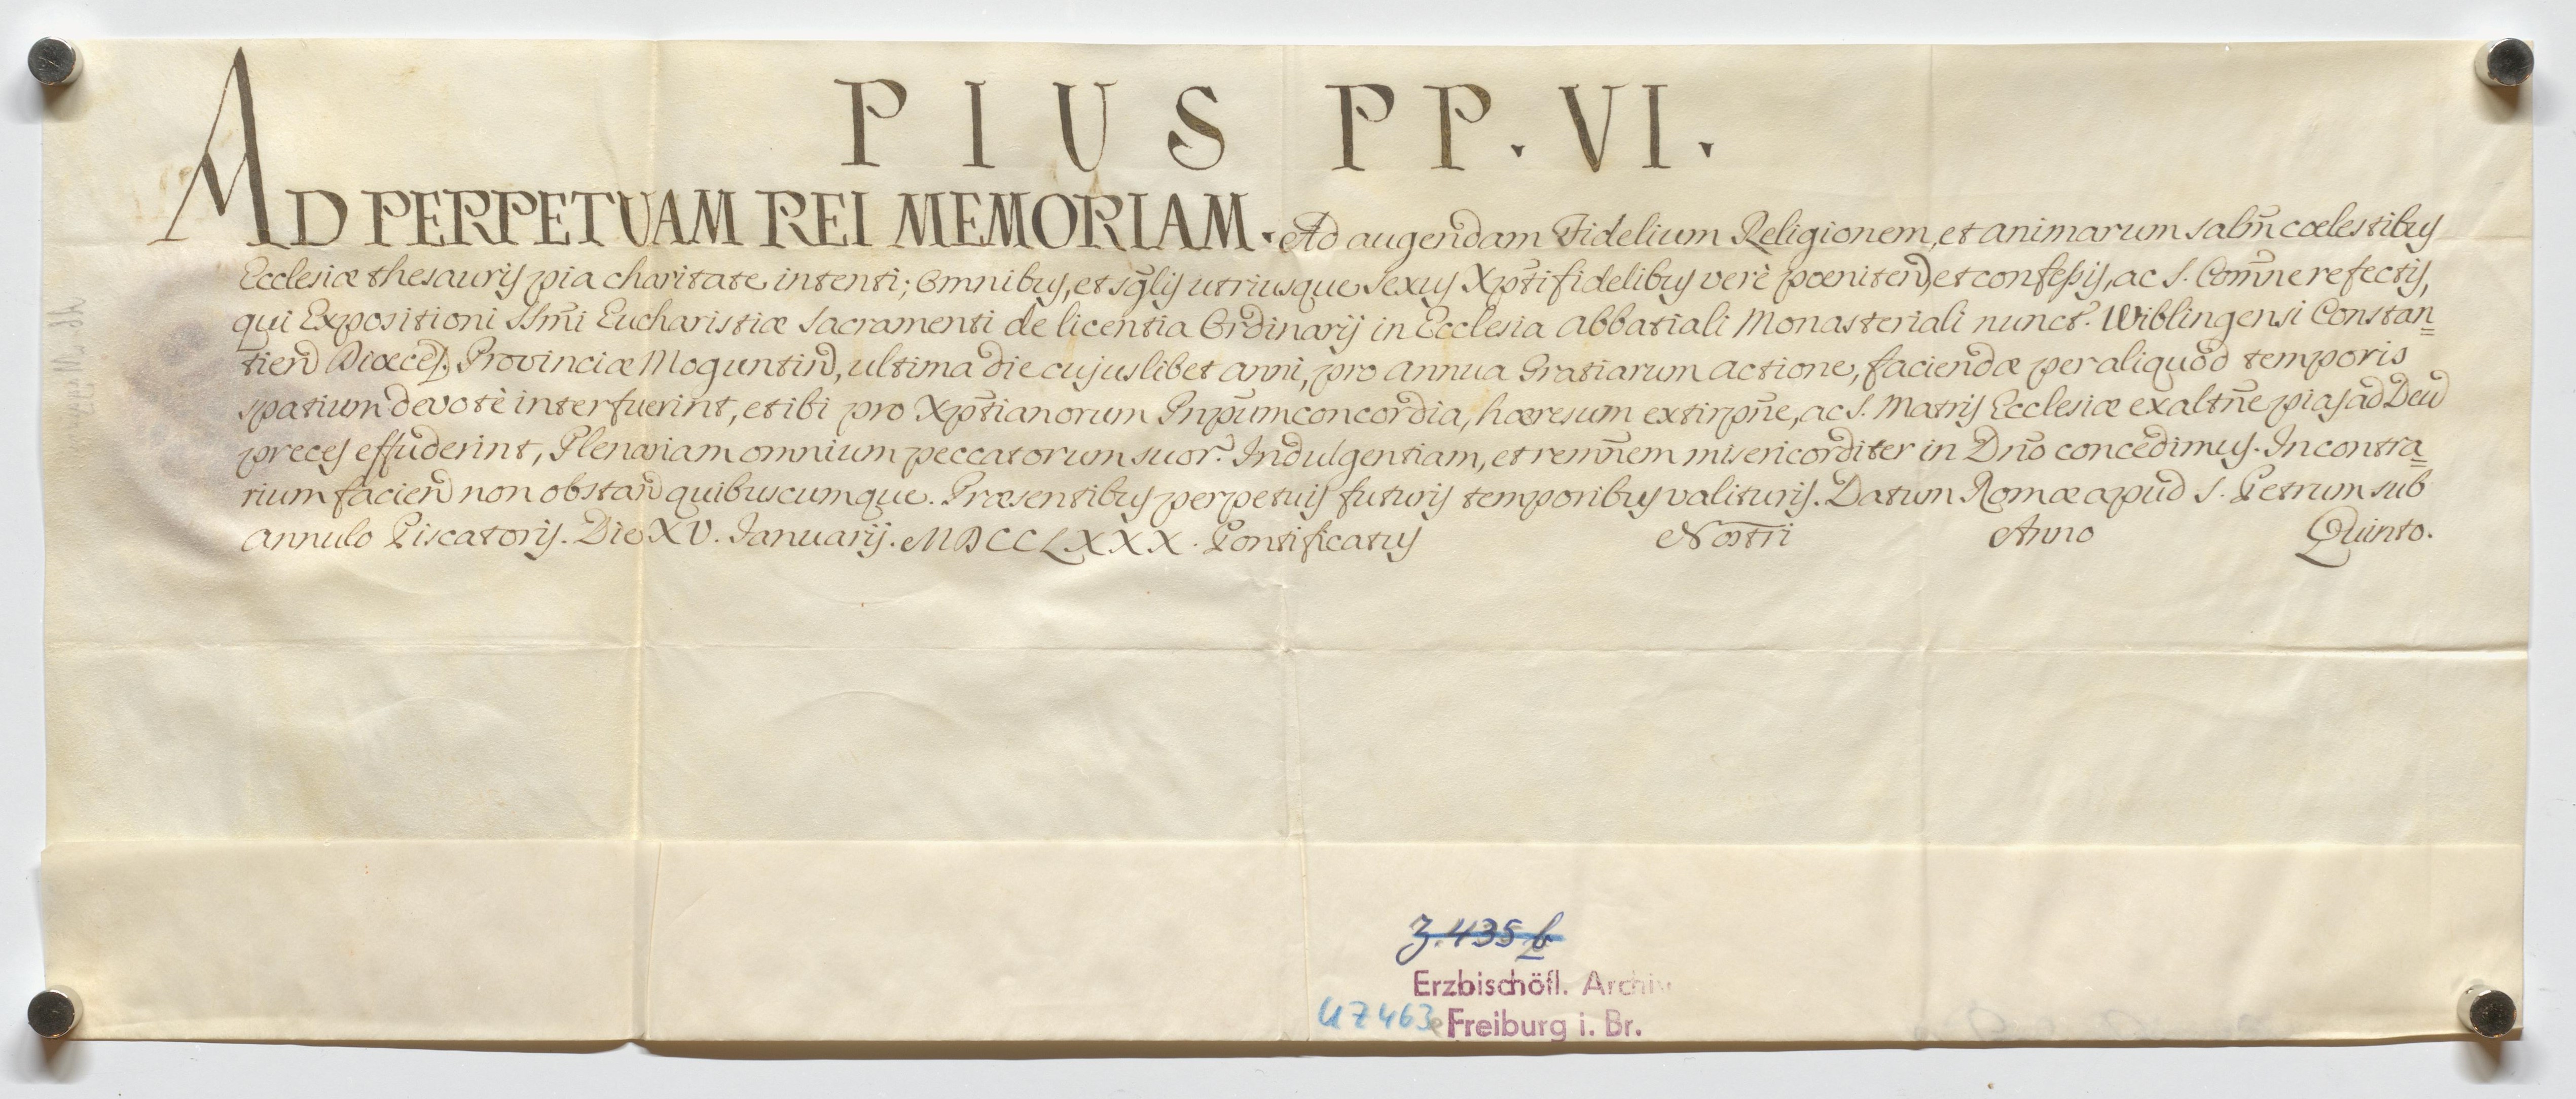 PIUS PP. VI.
AD PERPETUAM REI MEMORIAM. Ad augendam Fidelium Religionem, et animarum salutm̃ cœlestibus
Ecclesiæ thesauris pia charitate intenti; Omnibus, et sg̃lis utriusque sexus Xpt̃ifidelibus verè pœniteñ, et confessis, ac S. Com̃ne refectis,
qui Expositioni SSm̃i Eucharistiæ Sacramenti de licentia Ordinarij in Ecclesia Abbatiali Monasteriali nunct. Wiblingensi Constan=
tieñ Diœces. Provinciæ Moguntiñ, ultima die cujuslibet anni, pro annua Gratiarum actione, faciendæ per aliquod temporis
spatium devotè interfuerint, et ibi pro Xpt̃ianorum Pnp̃um concordia, hæresum extirpñe, ac S. Matris Ecclesiæ exaltñe pias ad Deũ
preces effuderint, Plenariam omnium peccatorum suor. Indulgentiam, et remñem misericorditer in Dño concedimus. In contra=
rium facieñ non obstañ quibuscumque. Præsentibus perpetuis futuris temporibus valituris. Datum Romæ apud S. Petrum sub
Annulo Piscatoris. Die XV. Januarij. MDCCLXXX. Pontificatus Nostri Anno Quinto.
Z. 435 b
Erzbischöfl. Archiv
UZ 463
Freiburg i. Br.